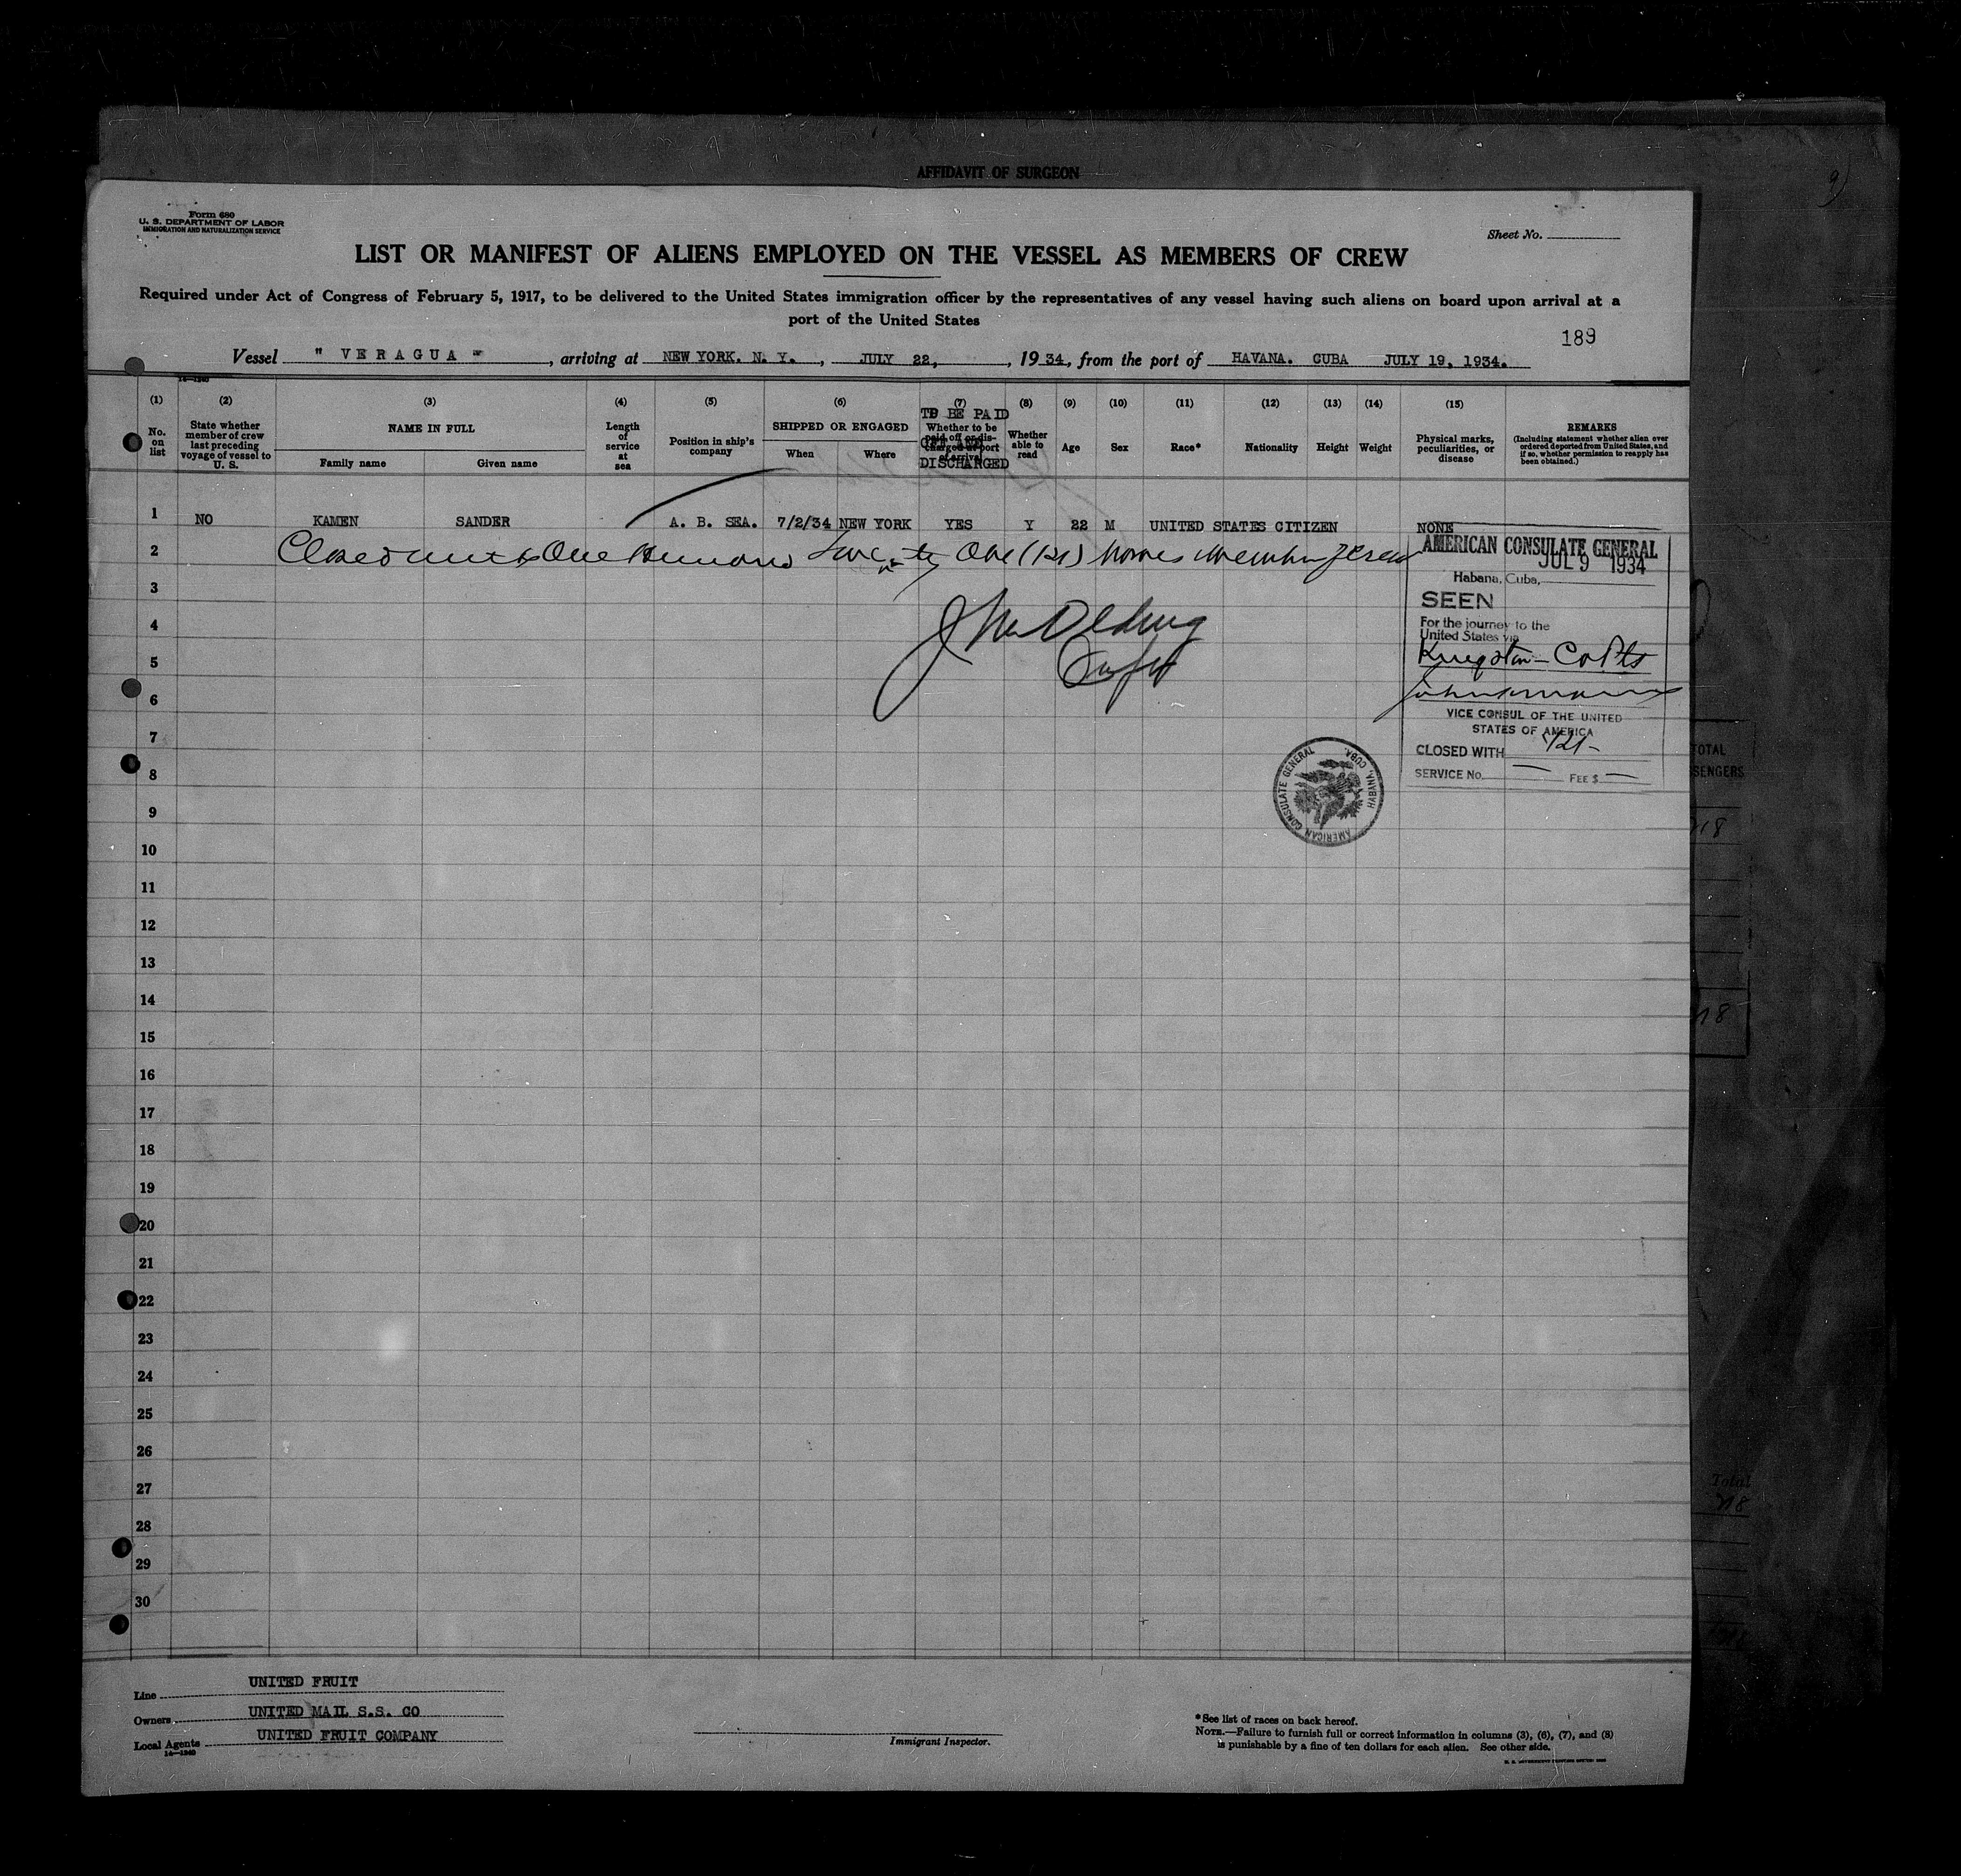 AFFIDAVIT OF SURGEON
9)
Form 680
U. S. DEPARTMENT OF LABOR
IMMIGRATION AND NATURALIZATION SERVICE
Sheet No.
LIST OR MANIFEST OF ALIENS EMPLOYED ON THE VESSEL AS MEMBERS OF CREW
Required under Act of Congress of February 5, 1917, to be delivered to the United States immigration officer by the representatives of any vessel having such aliens on board upon arrival at a
port of the United States
189
Vessel " VERAGUA " , arriving at NEW YORK. N. Y. , JULY 22, , 19 34, from the port of HAVANA. CUBA JULY 19, 1934.
14—1240
(1) (2) (3) (4) (5) (6) (7) (8) (9) (10) (11) (12) (13) (14) (15)
No. on list
State whether member of crew last preceding voyage of vessel to U. S.
NAME IN FULL
Family name Given name
Length of service at sea
Position in ship's company
SHIPPED OR ENGAGED
When Where
TO BE PAID OFF AND DISCHARGED
Whether to be paid off or discharged at port of arrival
Whether able to read
Age
Sex
Race*
Nationality
Height
Weight
Physical marks, peculiarities, or disease
REMARKS
(Including statement whether alien ever ordered deported from United States, and if so, whether permission to reapply has been obtained.)
1 NO KAMEN SANDER A. B. SEA. 7/2/34 NEW YORK YES Y 22 M UNITED STATES CITIZEN NONE
2 Closed with One Hundred Twenty One (121) names members of crew
AMERICAN CONSULATE GENERAL
JUL 9 1934
Habana, Cuba,
SEEN
For the journey to the
United States via
Kingston - Co Pts
VICE CONSUL OF THE UNITED
STATES OF AMERICA
CLOSED WITH 121-
SERVICE No. — FEE $ —
AMERICAN CONSULATE GENERAL HABANA, CUBA.
3
4
5
6
7
8
9
10
11
12
13
14
15
16
17
18
19
20
21
22
23
24
25
26
27
28
29
30
TOTAL
SENGERS
Total
Line UNITED FRUIT
Owners UNITED MAIL S.S. CO
Local Agents UNITED FRUIT COMPANY
14—1240
Immigrant Inspector.
*See list of races on back hereof.
NOTE.—Failure to furnish full or correct information in columns (3), (6), (7), and (8)
is punishable by a fine of ten dollars for each alien. See other side.